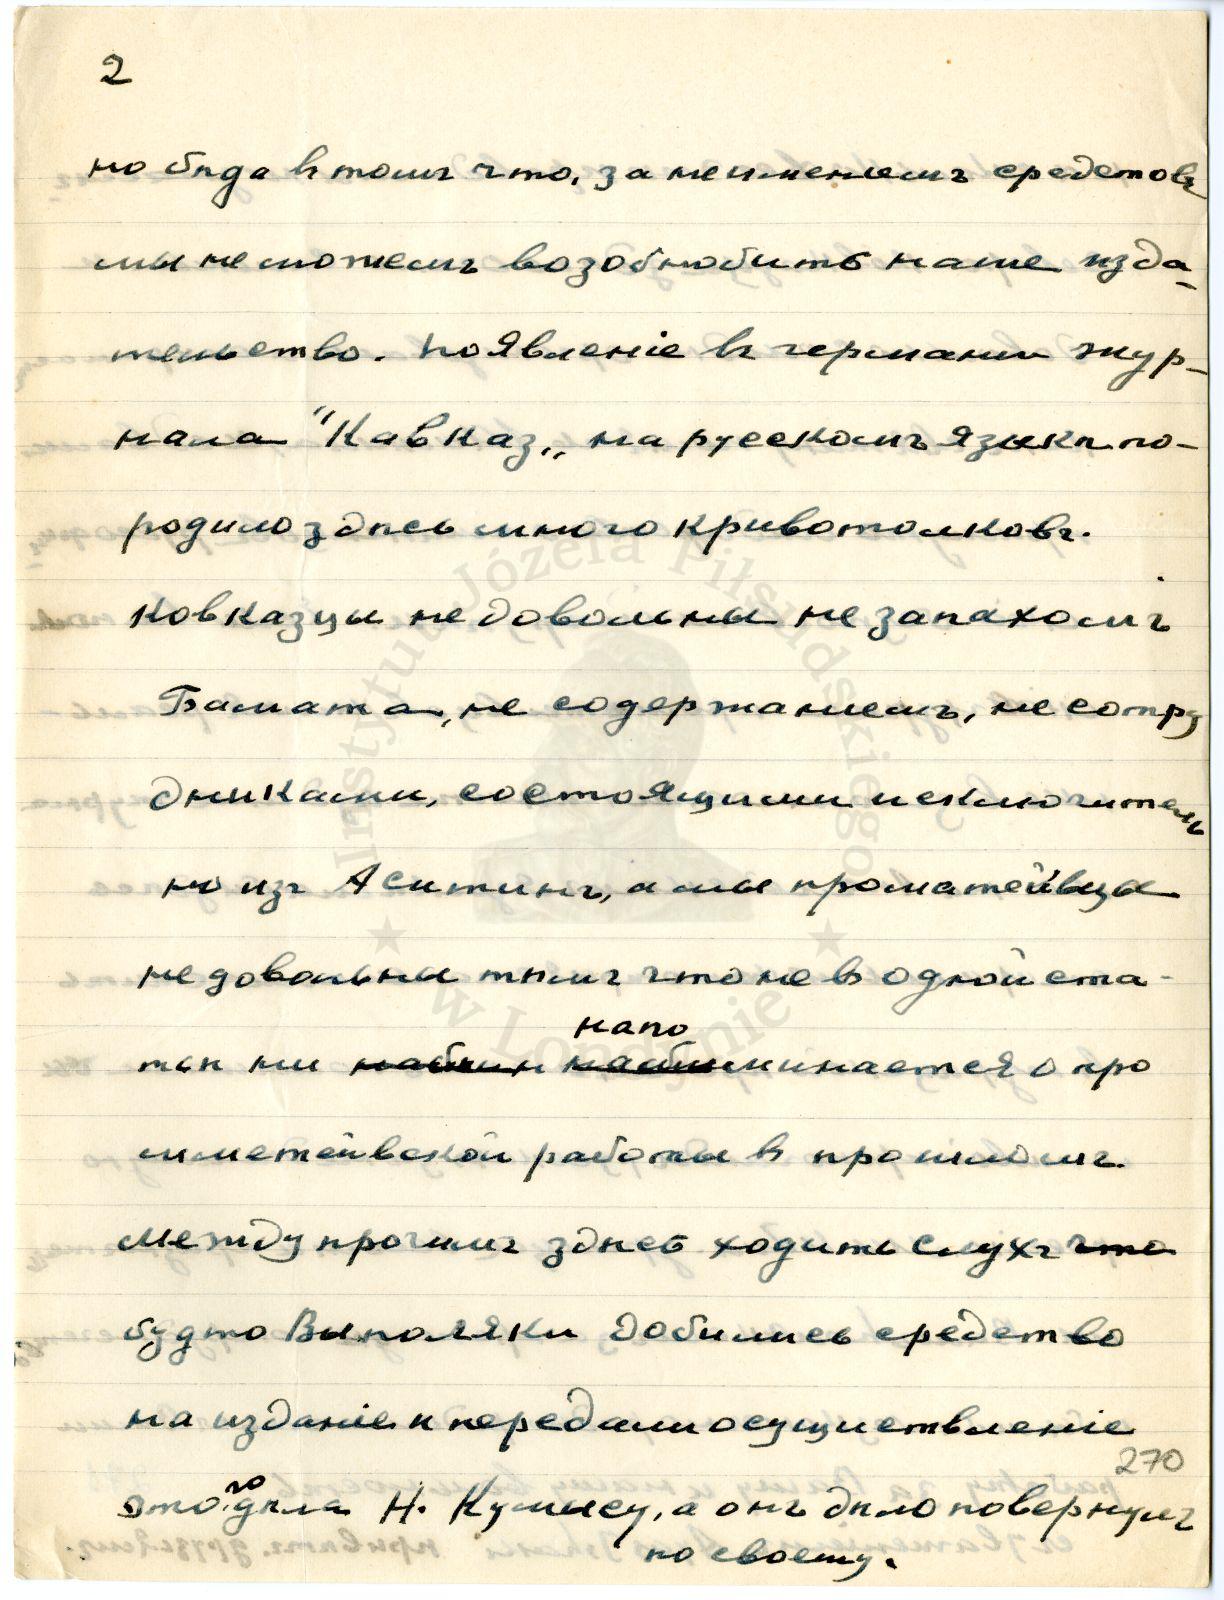 2
но бѣда въ томъ что, за неимениемъ средствовъ
мы не можемъ возобновить наше изда-
тельство. Появленіе въ германии жур-
нала "Кавказ„ на русскомъ языкѣ по-
родило здѣсь много кривотолковъ.
Ковказцы не довольны не запахомъ
Бамата, не содержанием, не сотру
дниками, состоящими исключитель
но изъ Аситинъ, а мы проматейвцы
не довольны тѣмъ что не въ одной ста-
напо
тьи ни минается о про
мметейвской работы въ прошломъ.
Между прочимъ здѣсь ходитъ слухъ что
будто Вы поляки добились средство
на изданіе и передали осуществленіе
этого дѣла Н. Кумысу, а онъ дѣло повернулъ
по своему.
270
Instytut Józefa Piłsudskiego
w Londynie